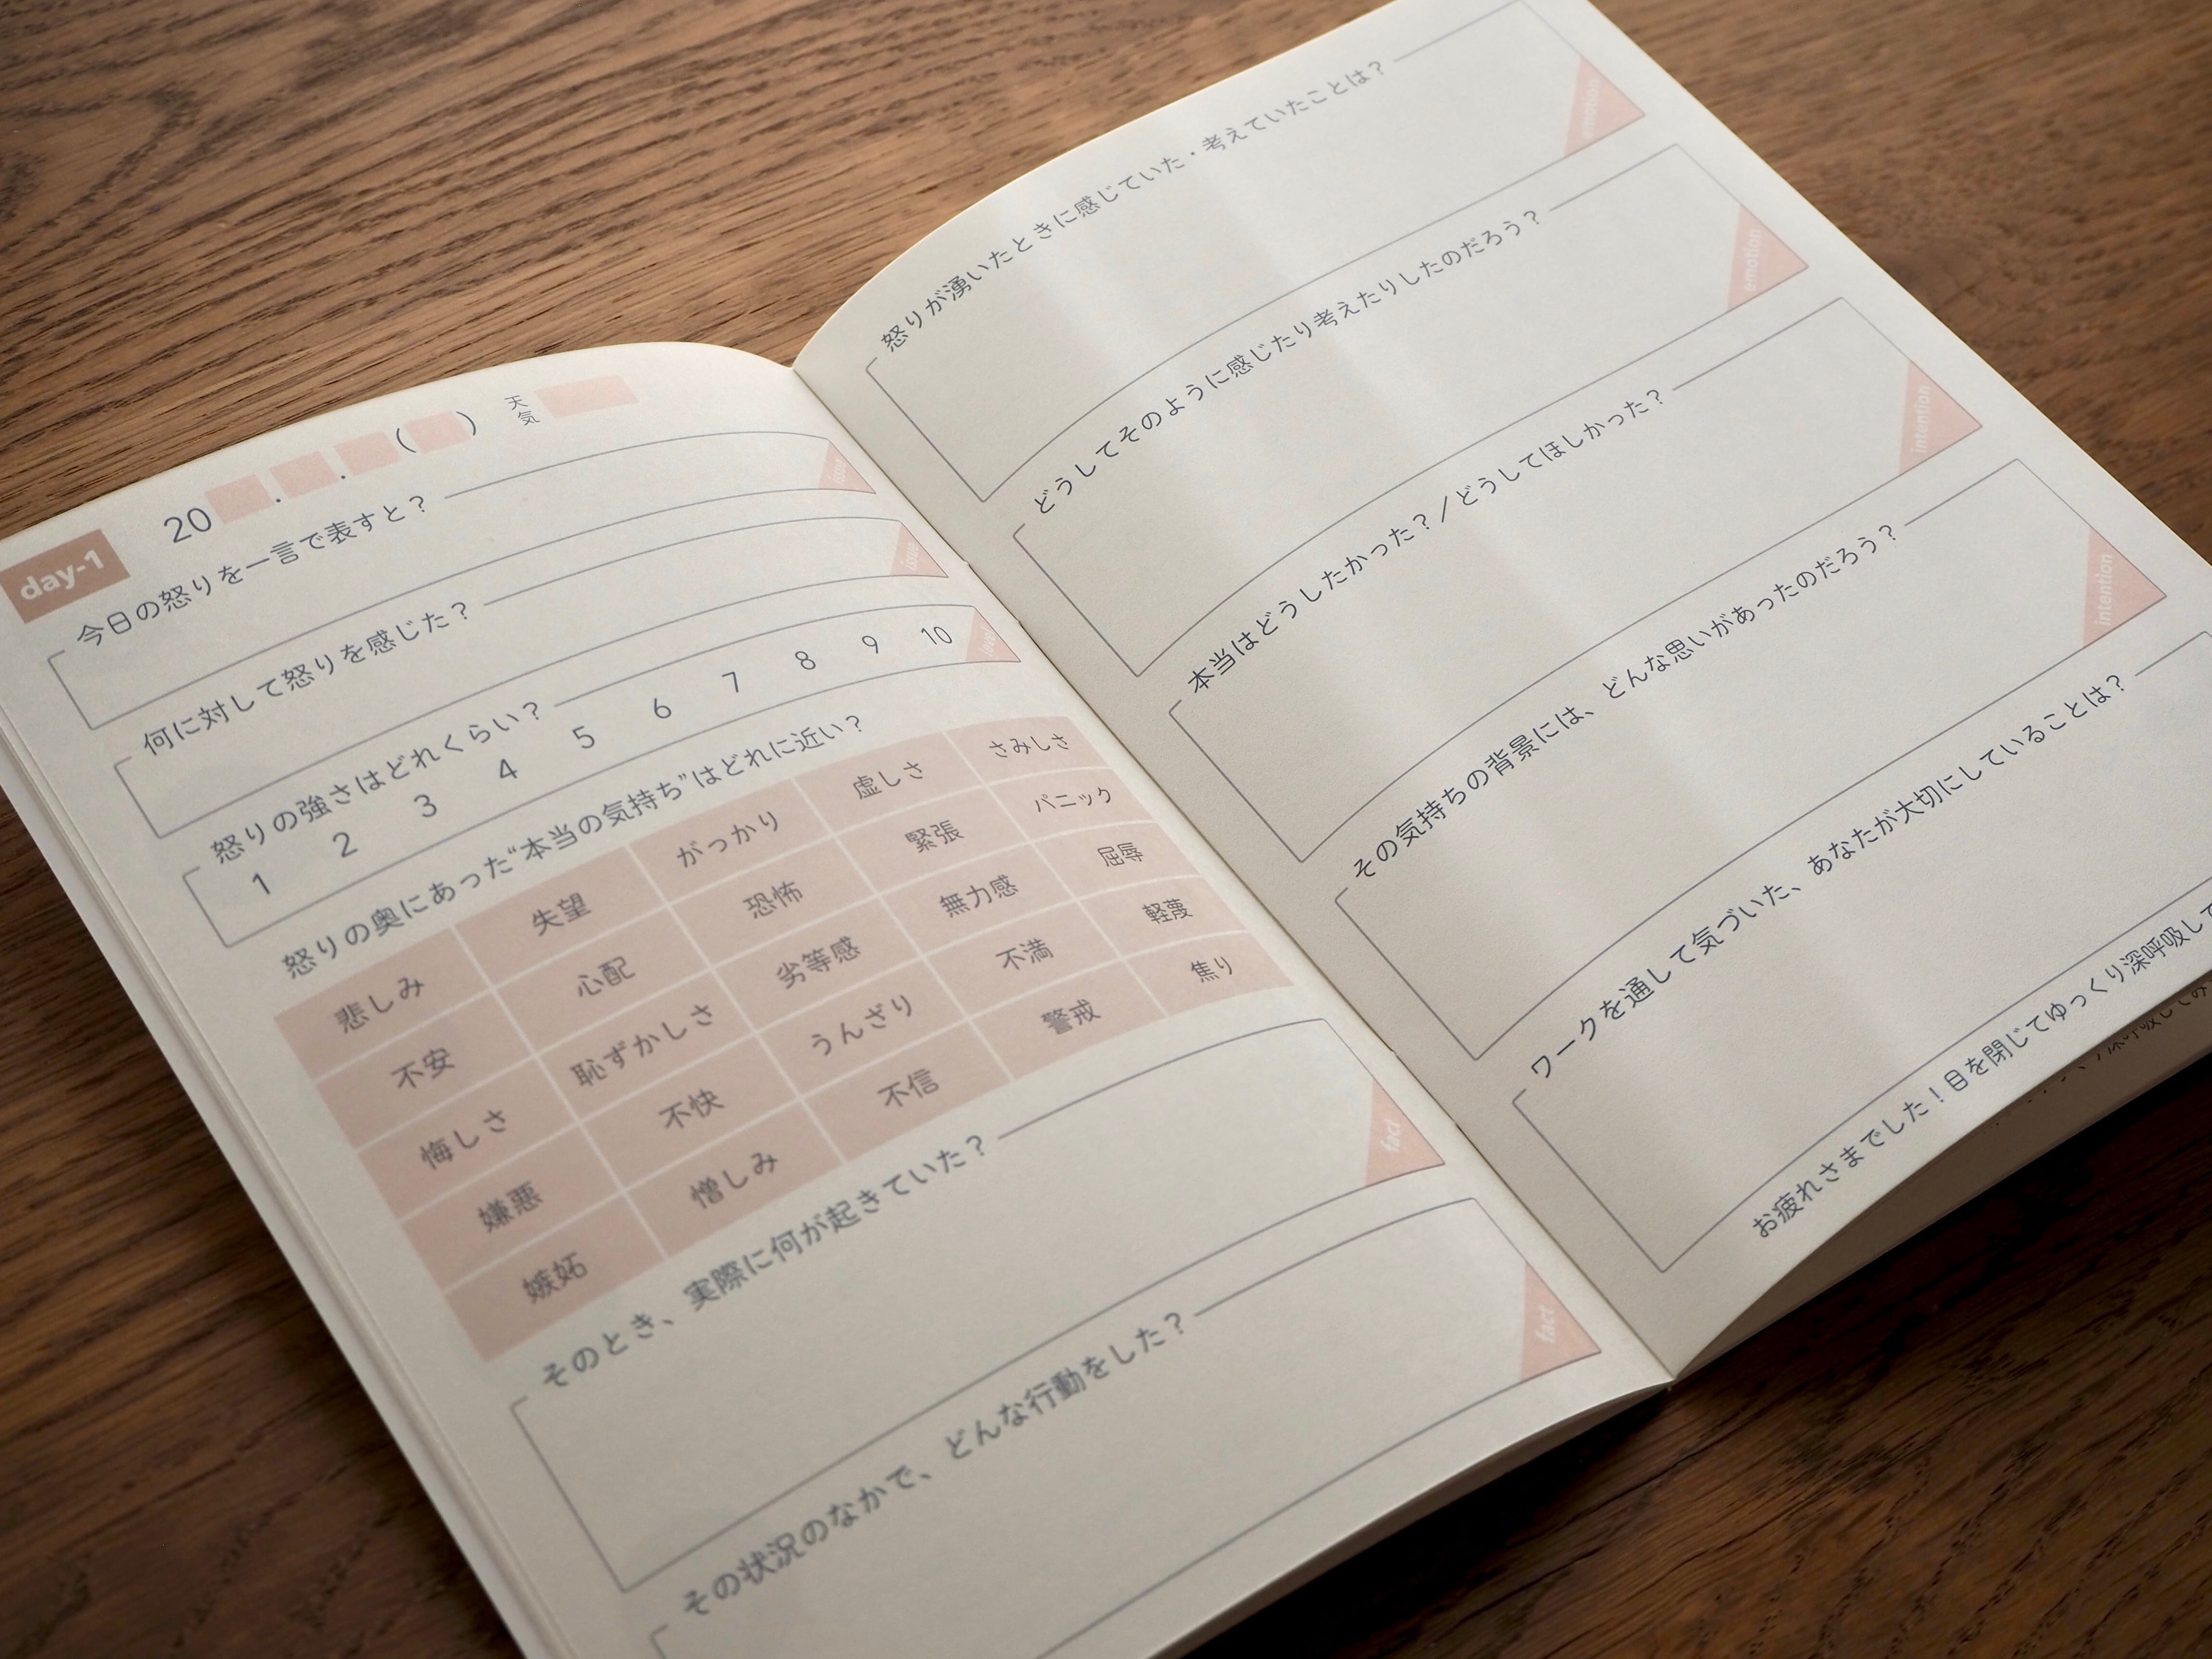 day-1
20 . . ( ) 天気
今日の怒りを一言で表すと？
issue
何に対して怒りを感じた？
issue
怒りの強さはどれくらい？
1 2 3 4 5 6 7 8 9 10
level
怒りの奥にあった“本当の気持ち”はどれに近い？
悲しみ 失望 がっかり 虚しさ さみしさ
不安 心配 恐怖 緊張 パニック
悔しさ 恥ずかしさ 劣等感 無力感 屈辱
嫌悪 不快 うんざり 不満 軽蔑
嫉妬 憎しみ 不信 警戒 焦り
そのとき、実際に何が起きていた？
fact
その状況のなかで、どんな行動をした？
fact
怒りが湧いたときに感じていた・考えていたことは？
emotion
どうしてそのように感じたり考えたりしたのだろう？
emotion
本当はどうしたかった？／どうしてほしかった？
intention
その気持ちの背景には、どんな思いがあったのだろう？
intention
ワークを通して気づいた、あなたが大切にしていることは？
お疲れさまでした！目を閉じてゆっくり深呼吸して